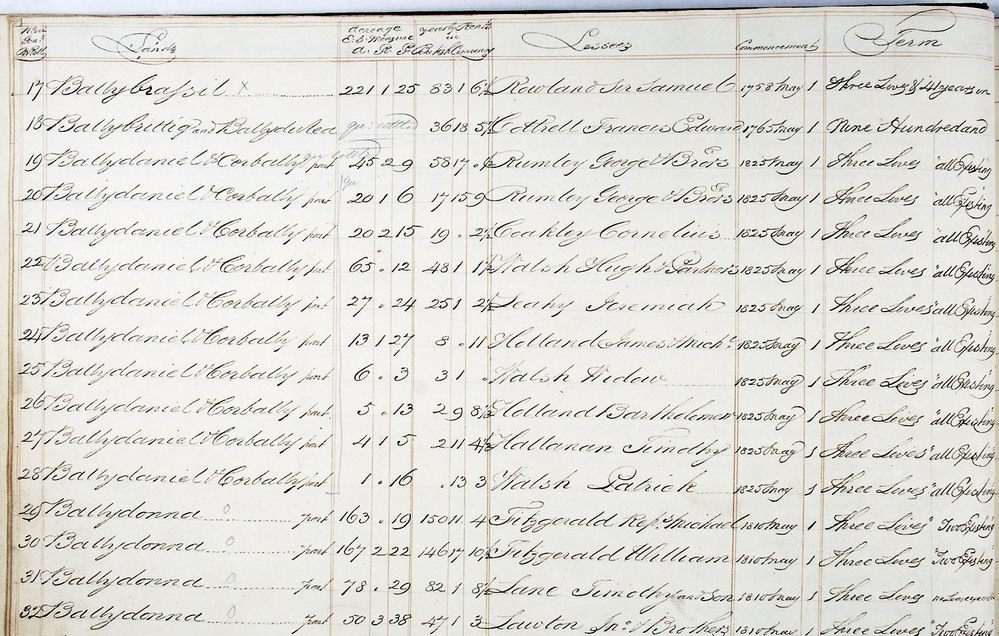 Lands acreage E.S. Measure A. R. P. yearly Rent in British Currency Lessees Commencement Term
17 Ballybrassil x 221 1 25 83 1 6½ Rowland Sir Samuel 1758 May 1 Three Lives & 41 years in
18 Ballybrittig and Ballyduvlea 36 18 5½ Cottrell Francis Edward 1765 May 1 Nine Hundred and
19 Ballydaniel & Corbally part 45 2 9 58 17 . Rumley George & Bro.rs 1825 May 1 Three Lives "all Existing
20 Ballydaniel & Corbally part 20 1 6 17 15 9 Rumley George & Bro.rs 1825 May 1 Three Lives "all Existing
21 Ballydaniel & Corbally part 20 2 15 19 . 2½ Coakley Cornelius 1825 May 1 Three Lives "all Existing
22 Ballydaniel & Corbally part 65 . 12 48 1 1½ Walsh Hugh & Partners 1825 May 1 Three Lives "all Existing
23 Ballydaniel & Corbally part 27 . 24 25 1 2½ Leahy Jeremiah 1825 May 1 Three Lives "all Existing
24 Ballydaniel & Corbally part 13 1 27 8 . 11 Holland James Mich.l 1825 May 1 Three Lives "all Existing
25 Ballydaniel & Corbally part 6 . 3 3 1 . Walsh Widow 1825 May 1 Three Lives "all Existing
26 Ballydaniel & Corbally part 5 . 13 2 9 8½ Holland Bartholomew 1825 May 1 Three Lives "all Existing
27 Ballydaniel & Corbally part 4 1 5 2 11 4½ Hallanan Timothy 1825 May 1 Three Lives "all Existing
28 Ballydaniel & Corbally part 1 . 16 . 13 3 Walsh Patrick 1825 May 1 Three Lives "all Existing
29 Ballydonna o part 163 . 19 150 11 4 Fitzgerald Rep.s Michael 1810 May 1 Three Lives "Two Existing
30 Ballydonna o part 167 2 22 146 17 10½ Fitzgerald William 1810 May 1 Three Lives "Two Existing
31 Ballydonna o part 78 . 29 82 1 8½ Lane Timothy and Son 1810 May 1 Three Lives
32 Ballydonna o part 50 3 38 47 1 3 Lawton Jn.o & Brothers 1810 May 1 Three Lives "Two Existing